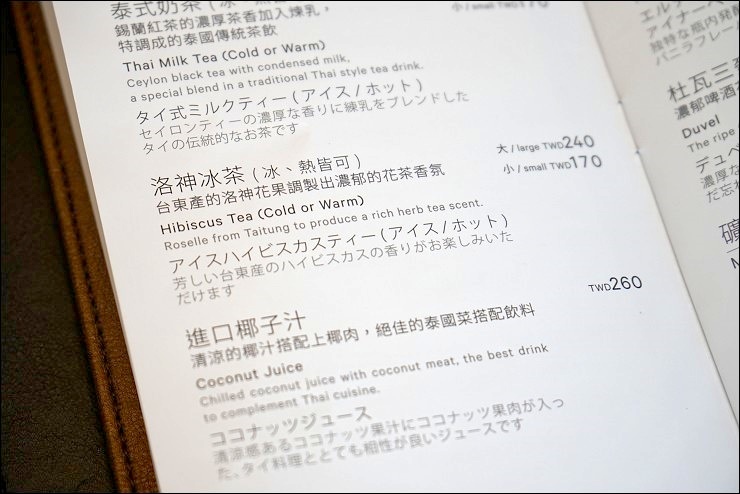 泰式奶茶(冰
小 / small TWD170
錫蘭紅茶的濃厚茶香加入煉乳,
特調成的泰國傳統茶飲
Thai Milk Tea (Cold or Warm)
Ceylon black tea with condensed milk,
a special blend in a traditional Thai style tea drink.
タイ式ミルクティー(アイス / ホット)
セイロンティーの濃厚な香りに練乳をブレンドした
タイの伝統的なお茶です
洛神冰茶(冰、熱皆可)
大 / large TWD240
小 / small TWD170
台東產的洛神花果調製出濃郁的花茶香氛
Hibiscus Tea (Cold or Warm)
Roselle from Taitung to produce a rich herb tea scent.
アイスハイビスカスティー(アイス / ホット)
芳しい台東産のハイビスカスの香りがお楽しみいた
だけます
進口椰子汁
TWD260
清涼的椰汁搭配上椰肉,絕佳的泰國菜搭配飲料
Coconut Juice
Chilled coconut juice with coconut meat, the best drink
to complement Thai cuisine.
ココナッツジュース
清涼感あるココナッツ果汁にココナッツ果肉が入っ
た、タイ料理ととても相性が良いジュースです
エルデ
アイナー
独特な瓶内発酵
バニラフレー
杜瓦三
濃郁啤酒
Duvel
The ripe
デュベ
濃厚な
だ忘れ
礦